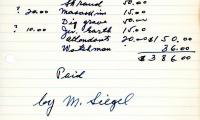 Shroud 50.00
? 20.00 Mausoleum 15.00
Dig grave 50.00
? 10.00 Jiv. Earth 15.00
Attendants 20.00 $150.00
Watchman 36.00
$386.00
Paid
by M. Siegel